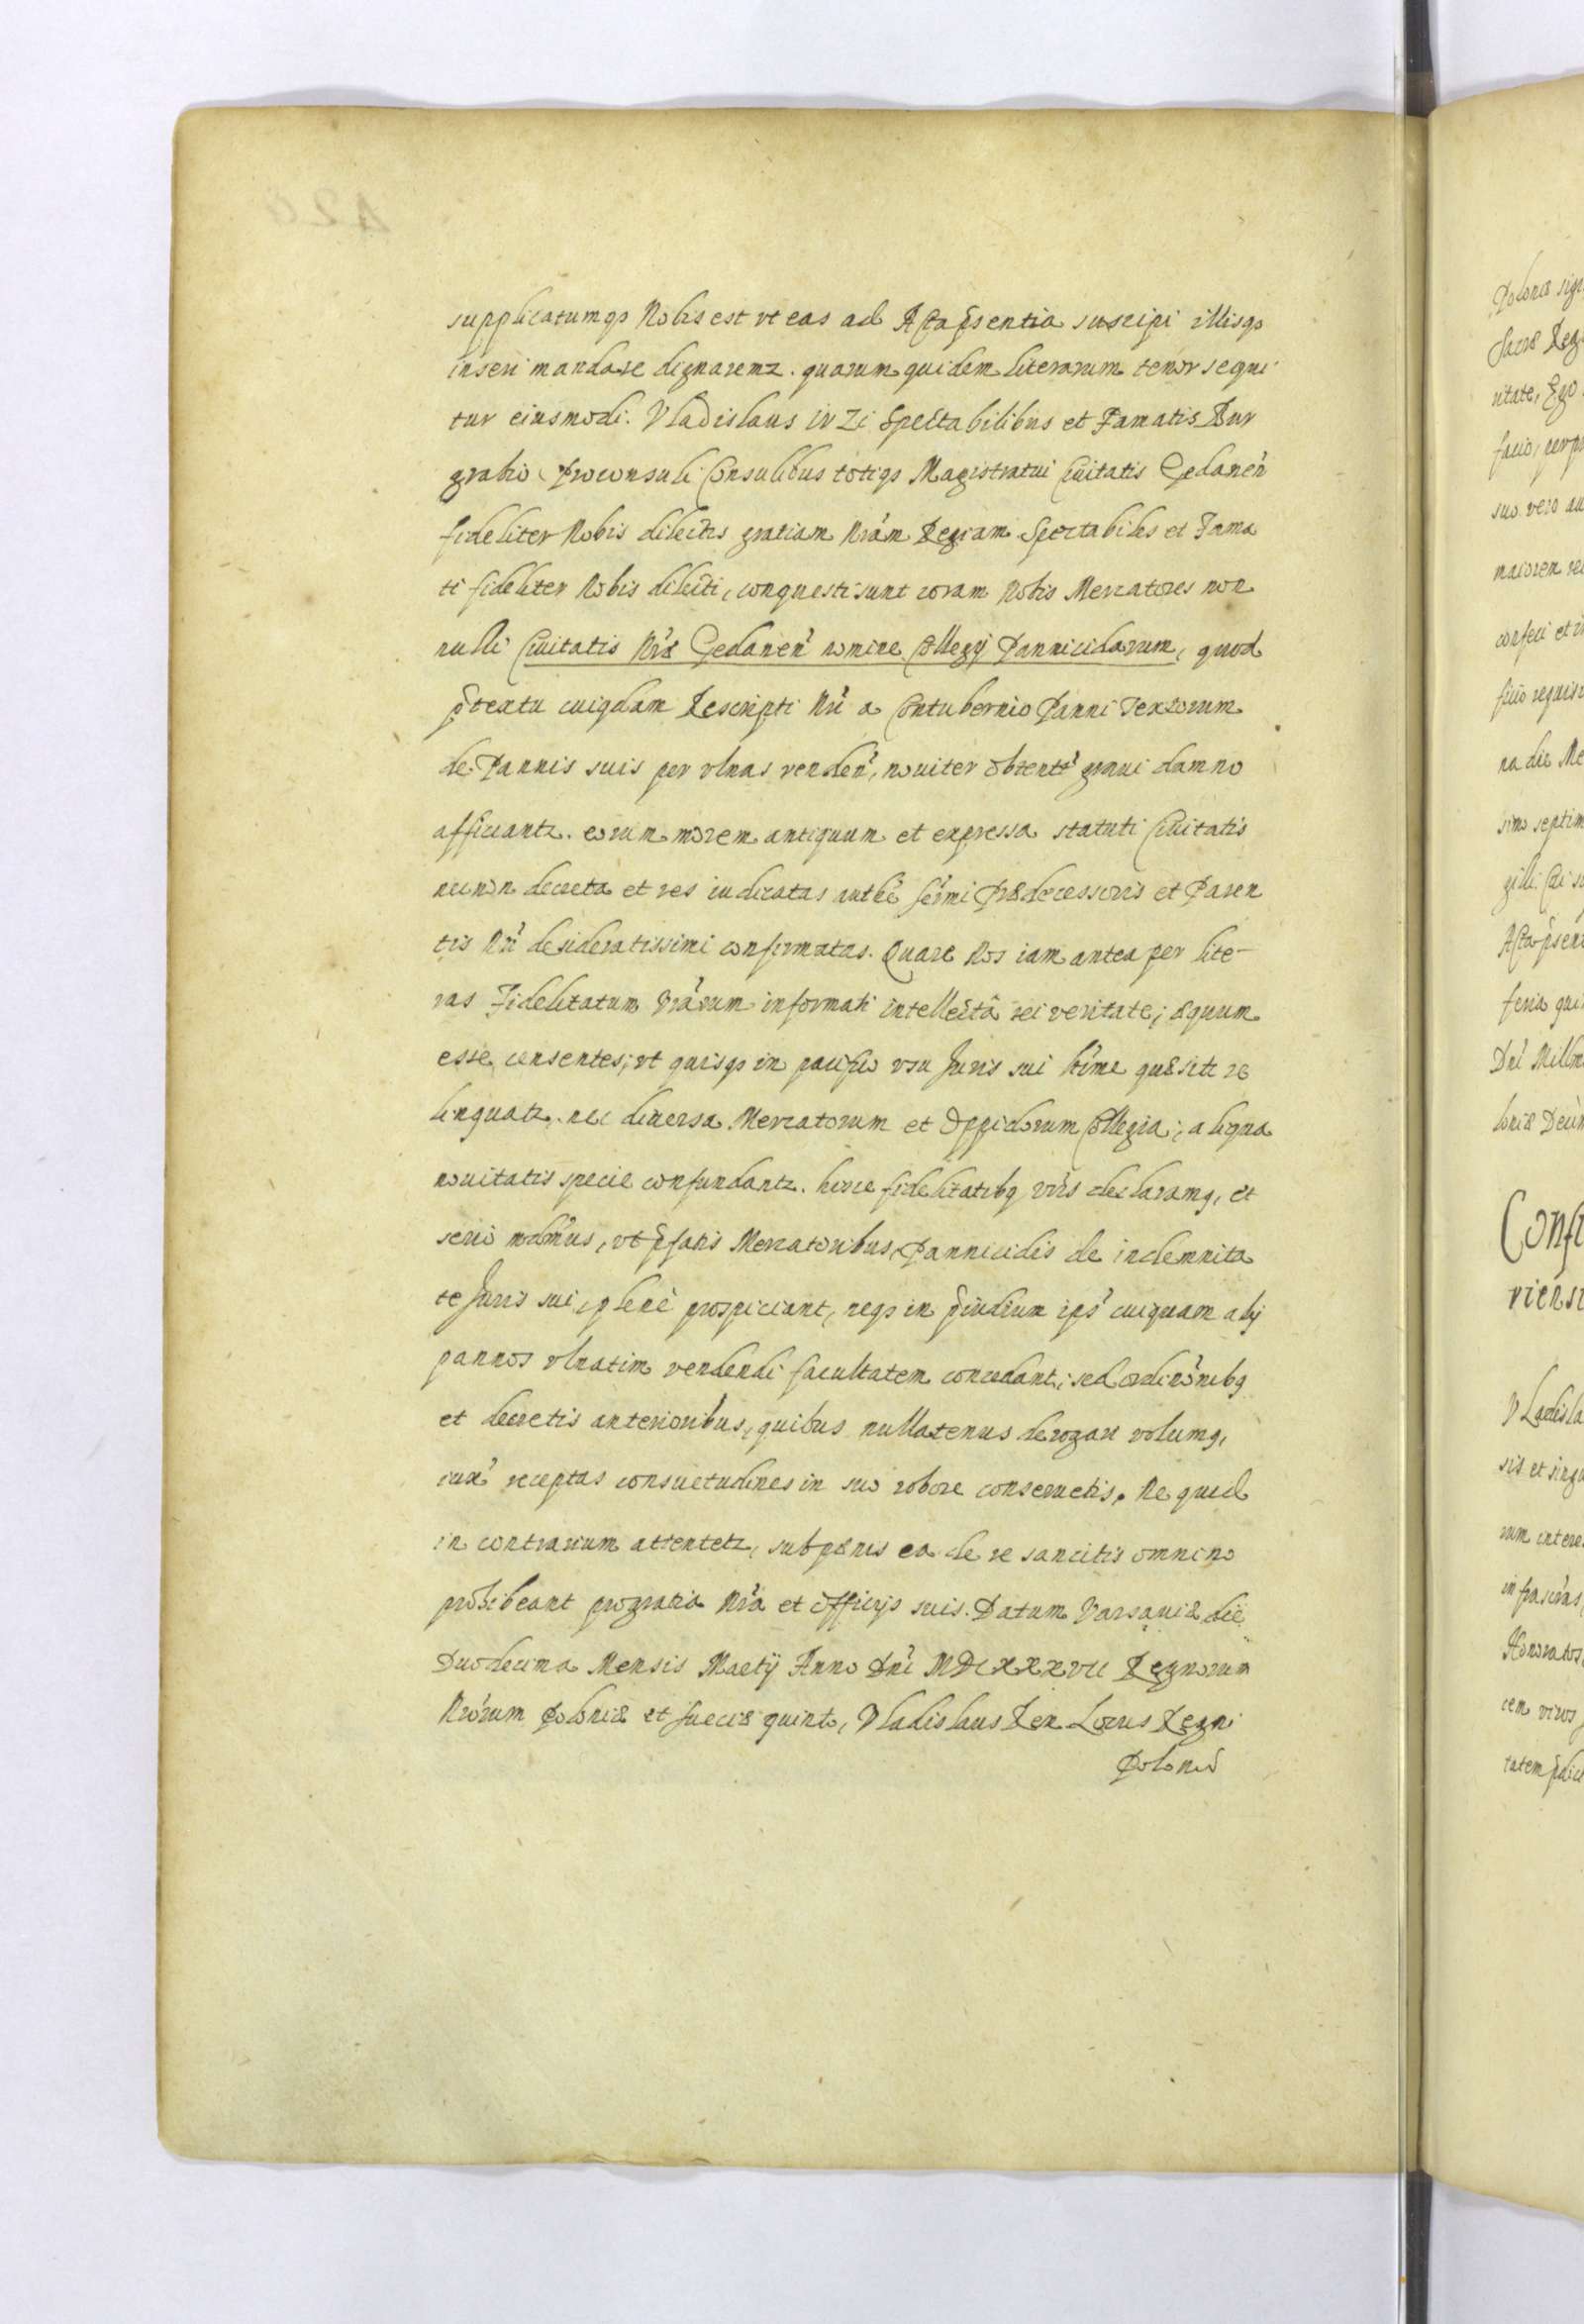 supplicatumqꝫ Nobis est vt eas ad Acta p̃sentia suscipi illisqꝫ
inseri mandare dignaremꝫ. quarum quidem literarum tenor sequi
tur eiusmodi. Vladislaus IV Zc Spectabilibus et Famatis Bur
grabio, Proconsuli Consulibus totiqꝫ Magistratui Ciuitatis Gedanen̄
fideliter Nobis dilectis gratiam Nrām Regiam Spectabiles et Fama
ti fideliter Nobis dilecti, conquesti sunt coram Nobis Mercatores non
nulli Ciuitatis Nrӕ Gedanen̄ nomine Collegij Pannicidarum, quod
p̃textu cuiqdam Rescripti Nri a Contubernio Panni Textorum
de Pannis suis per vlnas venden̄, nouiter obtent' graui damno
afficiantꝫ. eorum morem antiquum et expressa statuti Ciuitatis
necnon decreta et res iudicatas authē Sermi Prӕdecessoris et Paren
tis Nri desideratissimi confirmatas. Quare Nos iam antea per lite-
ras Fidelitatum Vrārum informati intellectâ rei veritate, ӕquum
esse censentes, vt quisqꝫ in pacifico vsu Juris sui ltime quӕsiti re
linquatꝫ. nec diuersa Mercatorum et Oppidorum Collegia, aliqua
nouitatis specie confundantꝫ. hisce fidelitatibq vris declaramq, et
serio mdmus, vt p̃fatis Mercatoribus, Pannicidis de indemnita
te Juris sui, plenè prospiciant, neqꝫ in p̃iudium ips' cuiquam alij
pannos vlnatim vendendi facultatem concedant, sed ordinōnibq
et decretis anterioribus, quibus nullatenus derogari volumq,
iux' receptas consuetudines in suo robore conseruetis. Ne quid
in contrarium attentetꝫ, sub pӕnis ea de re sancitis omnino
prohibeant pro gratia Nra et officijs suis. Datum Varsauiӕ die
Duodecima Mensis Martij Anno Dni MDCXXXVII Regnorum
Nrorum Poloniӕ et Sueciӕ quinto, Vladislaus Rex Locus Regni
Poloniӕ